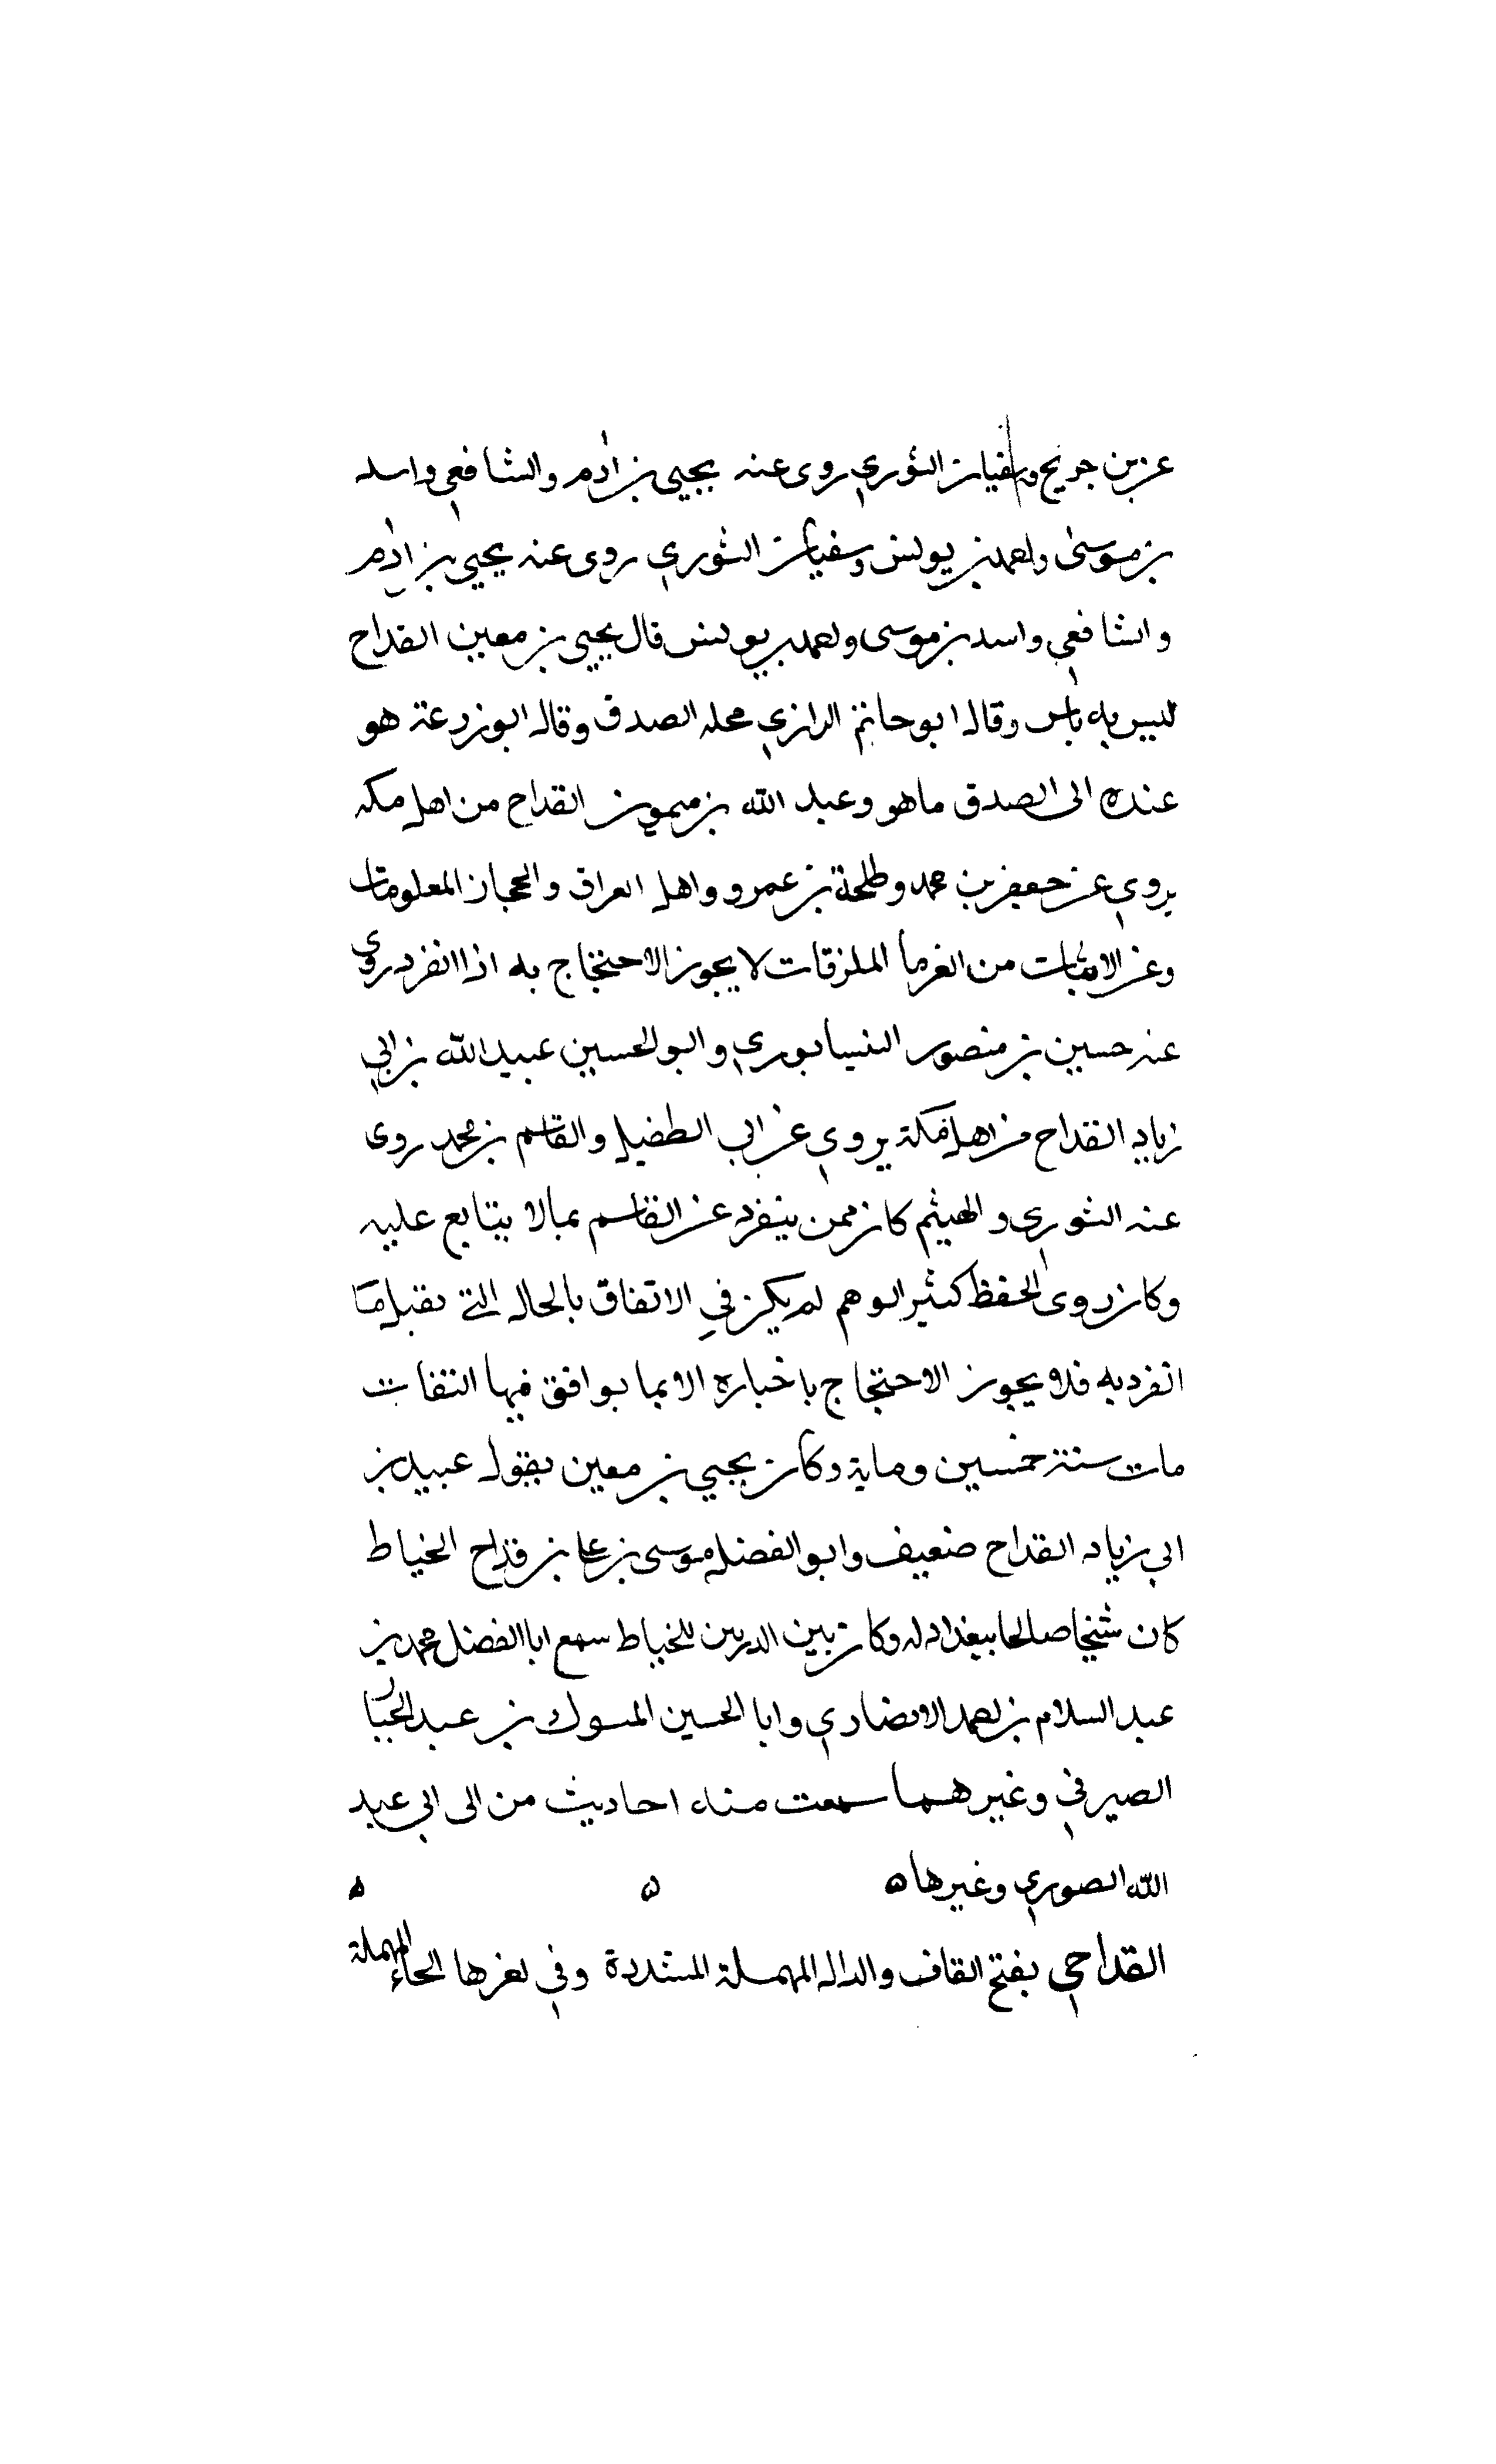 عن بن جريج وسفيان الثوري روى عنه يحيى بن ادم والشافعي واسد
بن موسى واحمد بن يونس وسفيان الثوري روى عنه يحيى بن ادم
والشافعي واسد بن موسى واحمد بن يونس قال يحيى بن معين القداح
ليس به باس وقال ابو حاتم الرازي محله الصدق وقال ابو زرعة هو
عنده الى الصدق ما هو وعبد الله بن ميمون القداح من اهل مكه
يروي عن جعفر بن محمد وطلحة بن عمرو واهل العراق والحجاز المعلومات
وعن الاثبات من الغرما الملزقات لا يجوز الاحتجاج به اذا انفرد روى
عنه حسين بن منصور النيسابوري وابو الحسين عبيد الله بن ابي
زياد القداح من اهل مكة يروي عن ابي الطفيل والقاسم بن محمد روى
عنه الثوري والهيثم كان ممن ينفرد عن القاسم بما لا يتابع عليه
وكان روى الحفظ كثير الوهم لم يكن في الاتفاق بالحال التي يقبل ما
انفرد به فلا يجوز الاحتجاج باخباره الا بما يوافق فيها الثقات
مات سنة خمسين وماية وكان يحيى بن معين يقول عبيد بن
ابي زياد القداح ضعيف وابو الفضل موسى بن علي بن قداح الخياط
كان شيخا صالحا ببغداد له وكان بين الدربين للخياط سمع ابا الفضل محمد بن
عبد السلام بن احمد الانصاري وابا الحسين المبارك بن عبد الجبار
الصيرفي وغيرهما سمعت منه احاديث من الى ابي عبد
الله الصوري وغيرها ه ه ه
القداحي بفتح القاف والدال المهملة المشددة وفي اخرها الحاء المهملة